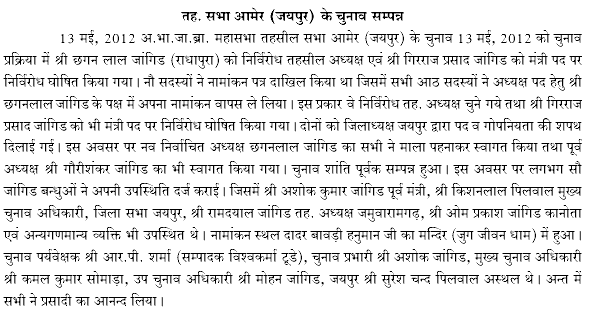 तह. सभा आमेर (जयपुर) के चुनाव सम्पन्न
13 मई, 2012 अ.भा.जा.ब्रा. महासभा तहसील सभा आमेर (जयपुर) के चुनाव 13 मई, 2012 को चुनाव
प्रक्रिया में श्री छगन लाल जांगिड (राधापुरा) को निर्विरोध तहसील अध्यक्ष एवं श्री गिरराज प्रसाद जांगिड को मंत्री पद पर
निर्विरोध घोषित किया गया। नौ सदस्यों ने नामांकन पत्र दाखिल किया था जिसमें सभी आठ सदस्यों ने अध्यक्ष पद हेतु श्री
छगनलाल जांगिड के पक्ष में अपना नामांकन वापस ले लिया। इस प्रकार वे निर्विरोध तह. अध्यक्ष चुने गये तथा श्री गिरराज
प्रसाद जांगिड को भी मंत्री पद पर निर्विरोध घोषित किया गया। दोनों को जिलाध्यक्ष जयपुर द्वारा पद व गोपनियता की शपथ
दिलाई गई। इस अवसर पर नव निर्वाचित अध्यक्ष छगनलाल जांगिड का सभी ने माला पहनाकर स्वागत किया तथा पूर्व
अध्यक्ष श्री गौरीशंकर जांगिड का भी स्वागत किया गया। चुनाव शांति पूर्वक सम्पन्न हुआ। इस अवसर पर लगभग सौ
जांगिड बन्धुओं ने अपनी उपस्थिति दर्ज कराई। जिसमें श्री अशोक कुमार जांगिड पूर्व मंत्री, श्री किशनलाल पिलवाल मुख्य
चुनाव अधिकारी, जिला सभा जयपुर, श्री रामदयाल जांगिड तह. अध्यक्ष जमुवारामगढ़, श्री ओम प्रकाश जांगिड कानोता
एवं अन्यगणमान्य व्यक्ति भी उपस्थित थे। नामांकन स्थल दादर बावड़ी हनुमान जी का मन्दिर (जुग जीवन धाम) में हुआ।
चुनाव पर्यवेक्षक श्री आर.पी. शर्मा (सम्पादक विश्वकर्मा टूडे), चुनाव प्रभारी श्री अशोक जांगिड, मुख्य चुनाव अधिकारी
श्री कमल कुमार सोमाड़ा, उप चुनाव अधिकारी श्री मोहन जांगिड, जयपुर श्री सुरेश चन्द पिलवाल अस्थल थे। अन्त में
सभी ने प्रसादी का आनन्द लिया।